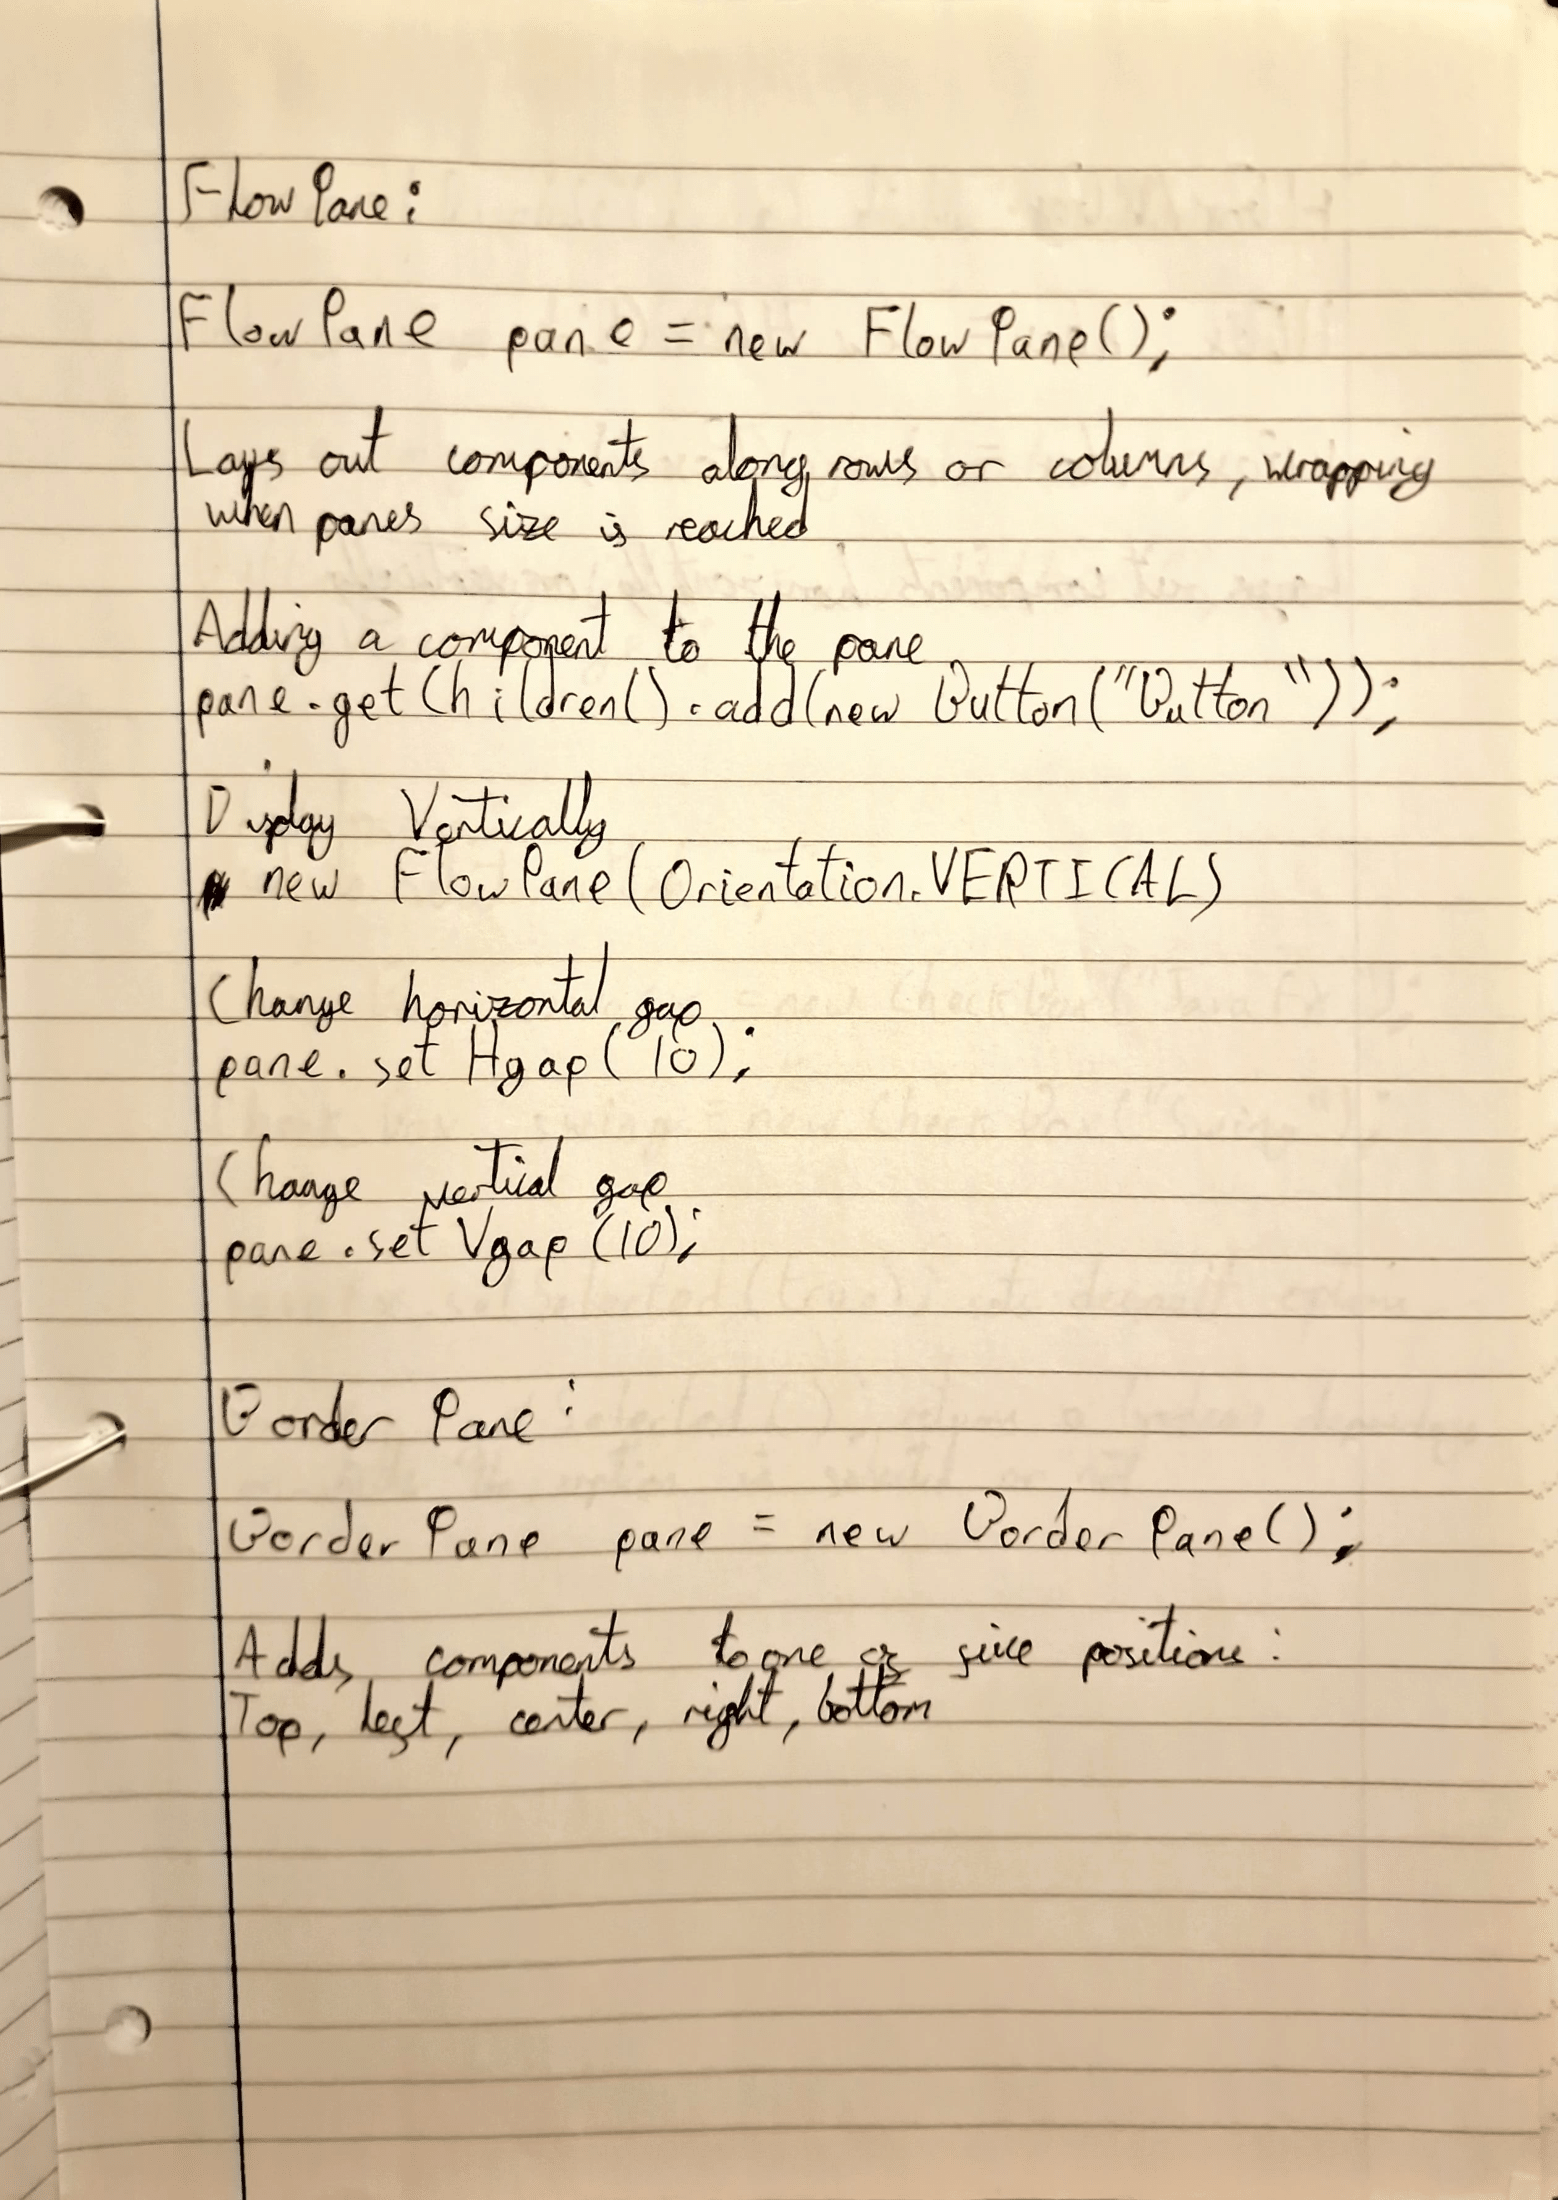 FlowPane:
FlowPane pane = new FlowPane();
Lays out components along rows or columns, wrapping
when panes size is reached
Adding a component to the pane
pane.getChildren().add(new Button("Button"));
Display Vertically
new FlowPane(Orientation.VERTICAL)
Change horizontal gap
pane.setHgap(10);
Change vertical gap
pane.setVgap(10);
Border Pane:
BorderPane pane = new BorderPane();
Adds components to one of five positions:
Top, left, center, right, bottom